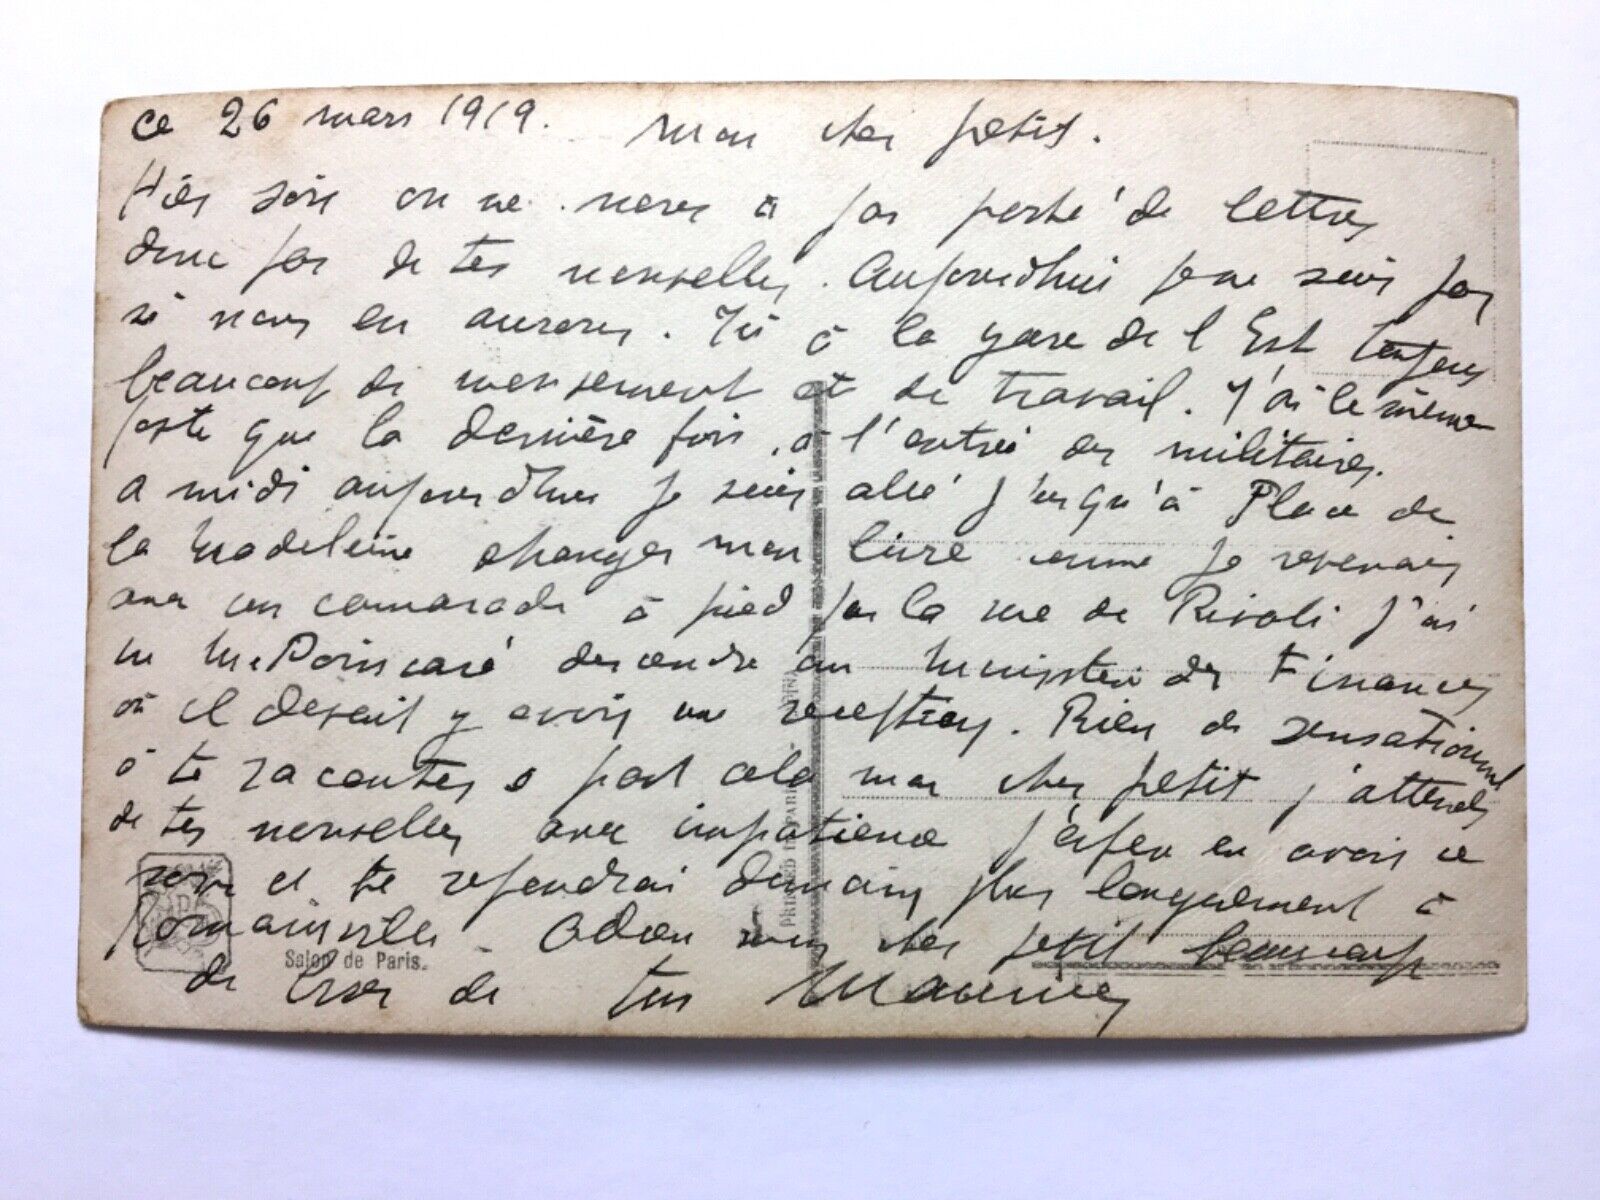 ce 26 mars 1919. Mon cher petit.
Hier soir on ne nous a pas porté de lettres
donc pas de tes nouvelles. Aujourdhui je ne sais pas
si nous en aurons. Ici à la gare de l'Est toujours
beaucoup de mouvement et de travail. J'ai le même
poste que la dernière fois, à l'entrée des militaires.
a midi aujourdhui je suis allé j'usqu'à Place de
la Madeleine changer mon livre comme je revenais
avec un camarade à pied par la rue de Rivoli j'ai
vu Mr Poincaré descendre au Ministère des Finances
où il devait y avoir une reception. Rien de sensationnel
à te raconter à part cela mon cher petit j'attends
de tes nouvelles avec impatience j'espère en avoir ce
soir et te rependrai demain plus longuement à
Romainville. Adieu mon cher petit beaucoup
de de ton Maurice
Salon de Paris.
PRINTED IN PARIS